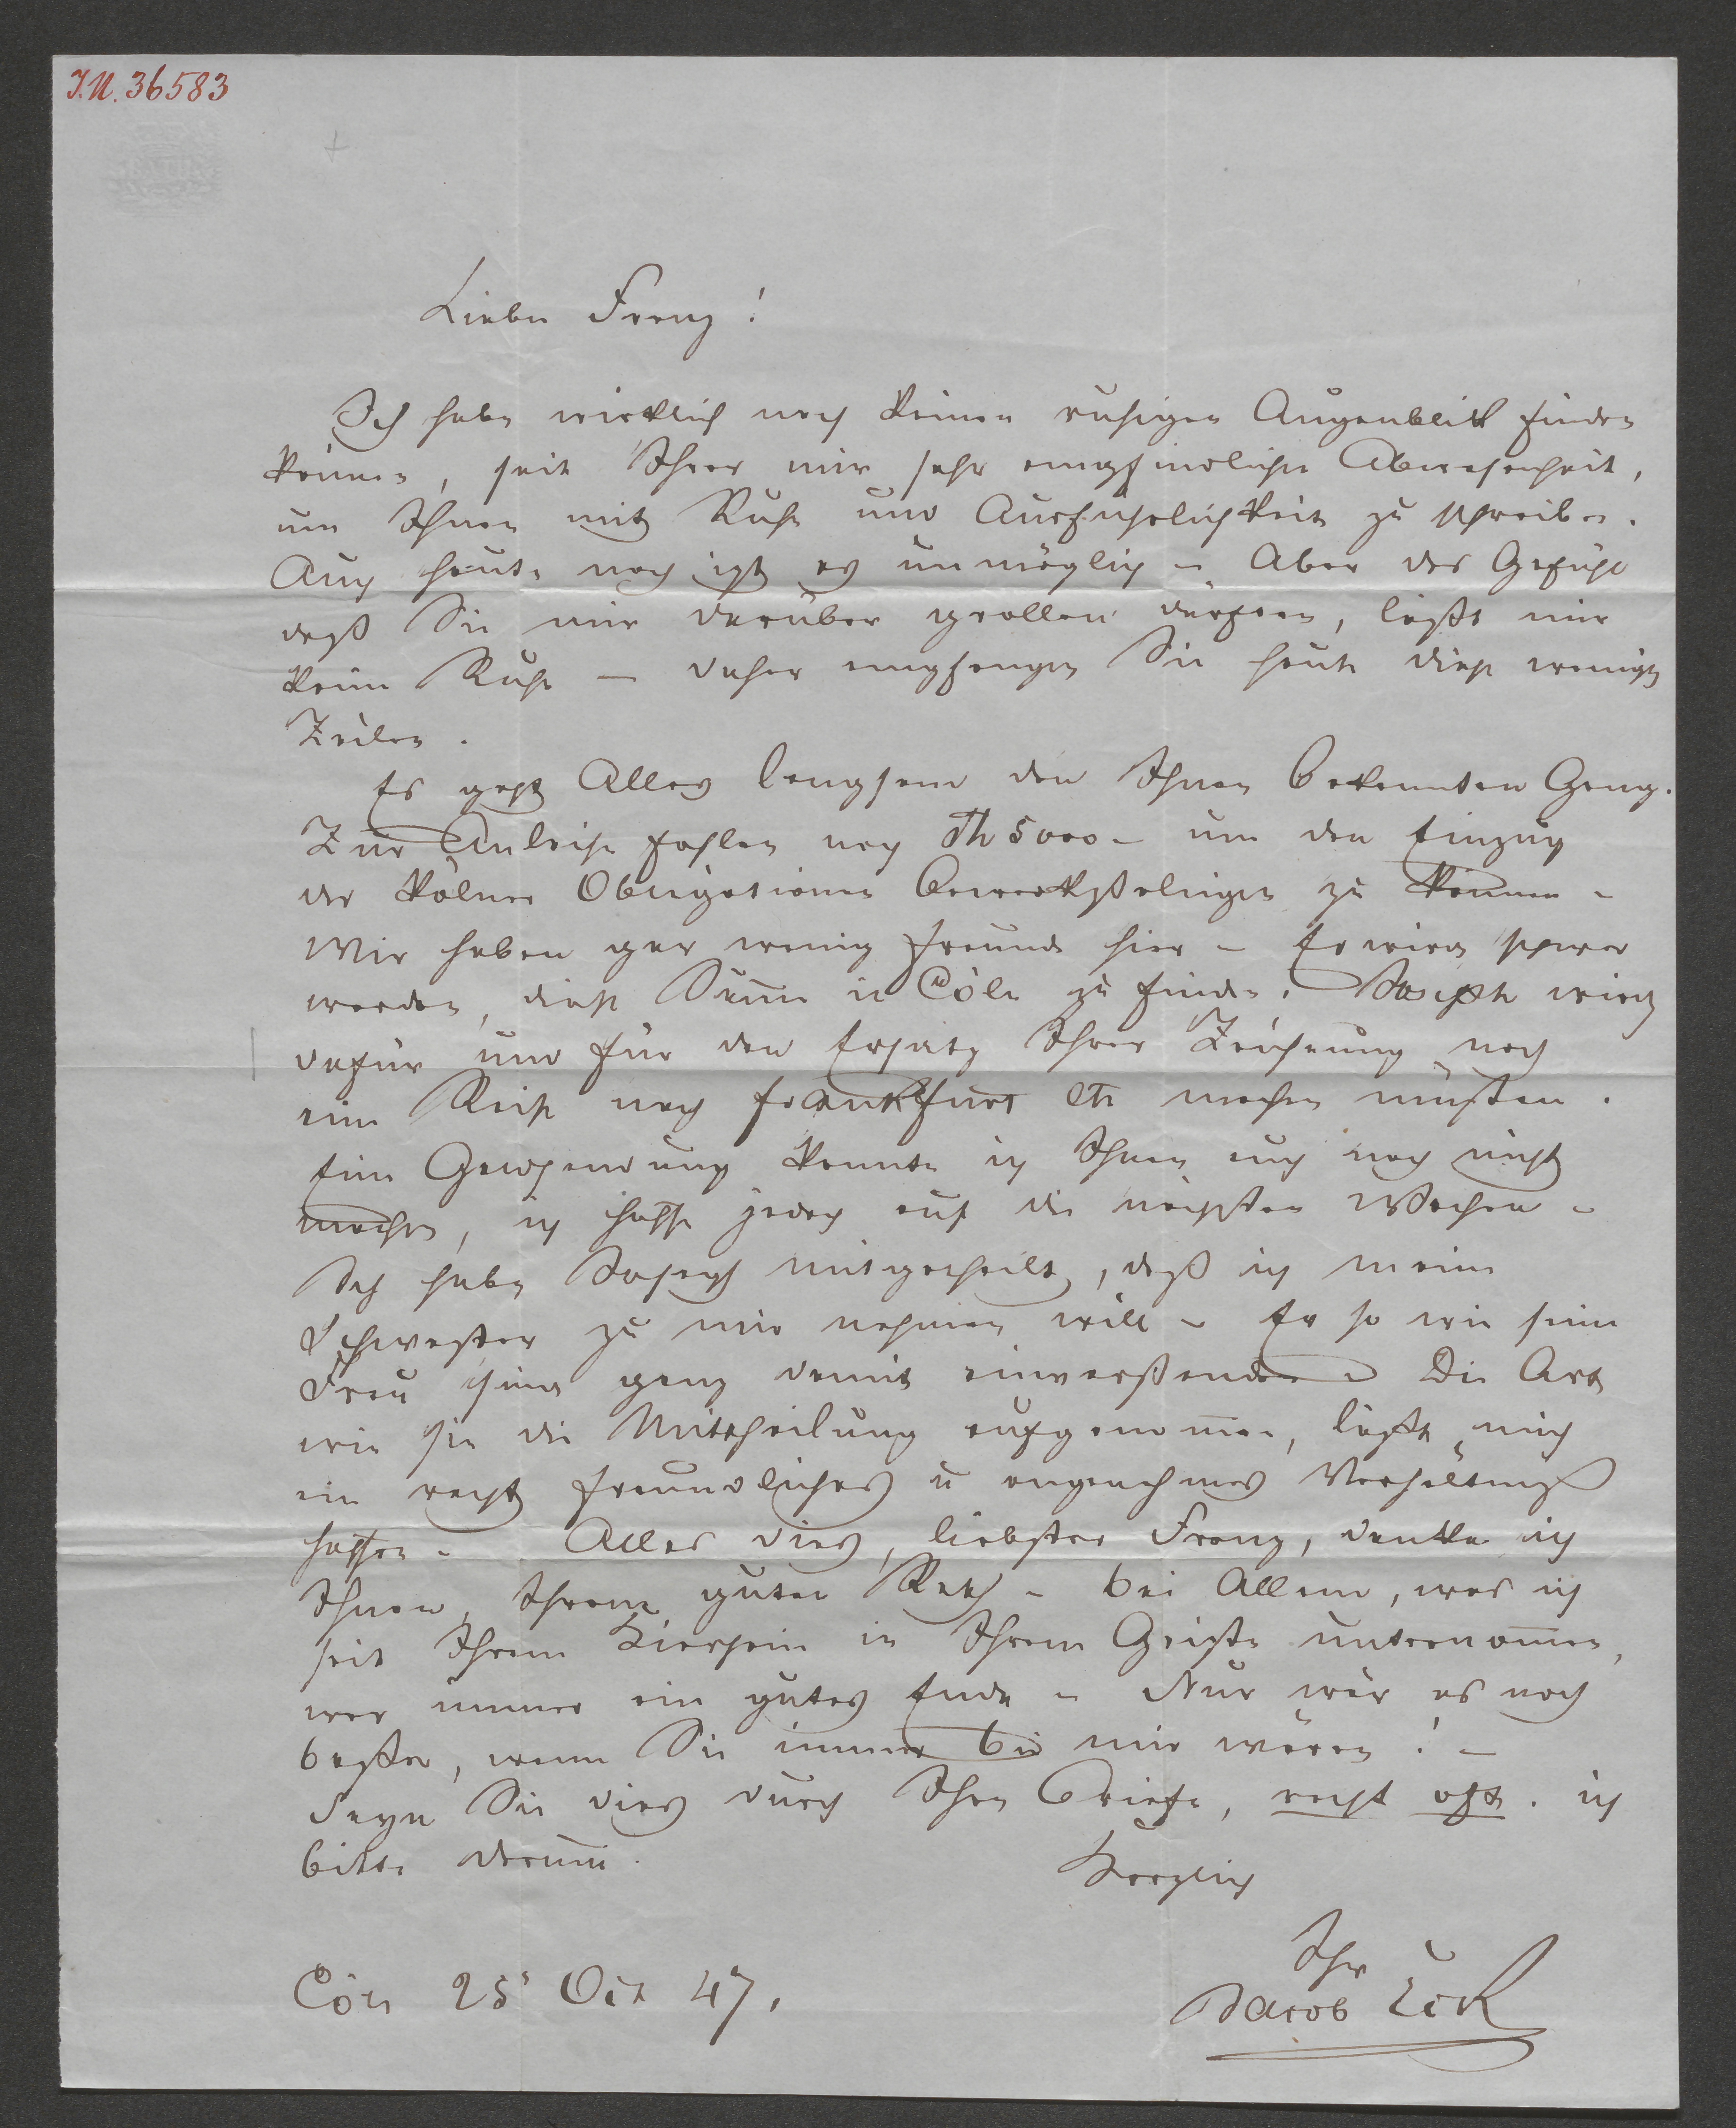 I.N. 36583
Lieber Franz!
Ich habe wirklich noch keinen ruhigen Augenblick finden
können, seit Ihrer mir sehr empfindlichen Abwesenheit,
um Ihnen mit Ruhe und Ausführlichkeit zu schreiben.
Auch heute noch ist es unmöglich – Aber das Gefühl
daß Sie mir darüber grollen dürfen, läßt mir
keine Ruhe – daher empfangen Sie heute diese wenigen
Zeilen.
Es geht Alles langsam den Ihnen bekannten Gang.
Zur Anleihe fehlen noch Th 5000 – um den Einzug
der Kölner Obligationen bewerkstelligen zu können –
Wir haben gar wenig Freunde hier – Es wird schwer
werden, diese Summe in Cöln zu finden. Joseph wird
dafür und für den Ersatz Ihrer Zeichnung noch
eine Reise nach Frankfurt etc machen müssen.
Eine Geldsendung konnte ich Ihnen auch noch nicht
machen, ich hoffe jedoch auf die nächsten Wochen –
Ich habe Joseph mitgetheilt, daß ich meine
Schwester zu mir nehmen will – Er so wie seine
Frau sind ganz damit einverstanden – Die Art
wie sie die Mittheilung aufgenommen, läßt mich
ein recht freundliches u angenehmes Verhältniß
hoffen – Alles dies, liebster Franz, danke ich
Ihnen, Ihrem guten Rath – bei Allem, was ich
seit Ihrem Hiersein in Ihrem Geiste unternommen,
war immer ein gutes Ende – Nur wär es noch
besser, wenn Sie immer bei mir wären! –
Seyn Sie dies durch Ihre Briefe, recht oft. ich
bitte darum.
Herzlich
Ihr
Jacob Eck
Cöln 25 Oct 47.